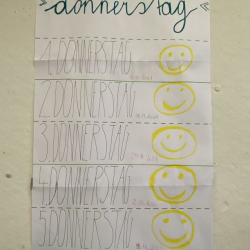 donnerstag
1. DONNERSTAG
2. DONNERSTAG
3. DONNERSTAG
4. DONNERSTAG
5. DONNERSTAG